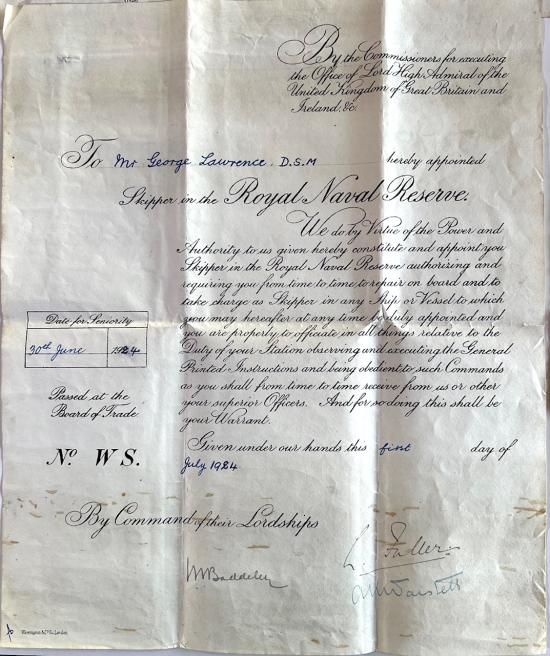 By the Commissioners for executing
the Office of Lord High Admiral of the
United Kingdom of Great Britain and
Ireland. &c.
To Mr George Lawrence. D.S.M hereby appointed
Skipper in the Royal Naval Reserve.
We do by Virtue of the Power and
Authority to us given hereby constitute and appoint you
Skipper in the Royal Naval Reserve authorizing and
requiring you from time to time to repair on board and to
take charge as Skipper in any Ship or Vessel to which
you may hereafter at any time be duly appointed and
you are properly to officiate in all things relative to the
Duty of your Station observing and executing the General
Printed Instructions and being obedient to such Commands
as you shall from time to time receive from us or other
your superior Officers. And for so doing this shall be
your Warrant.
Date for Seniority
30th June 1924
Passed at the
Board of Trade
No. W S.
Given under our hands this first day of
July 1924
By Command of their Lordships